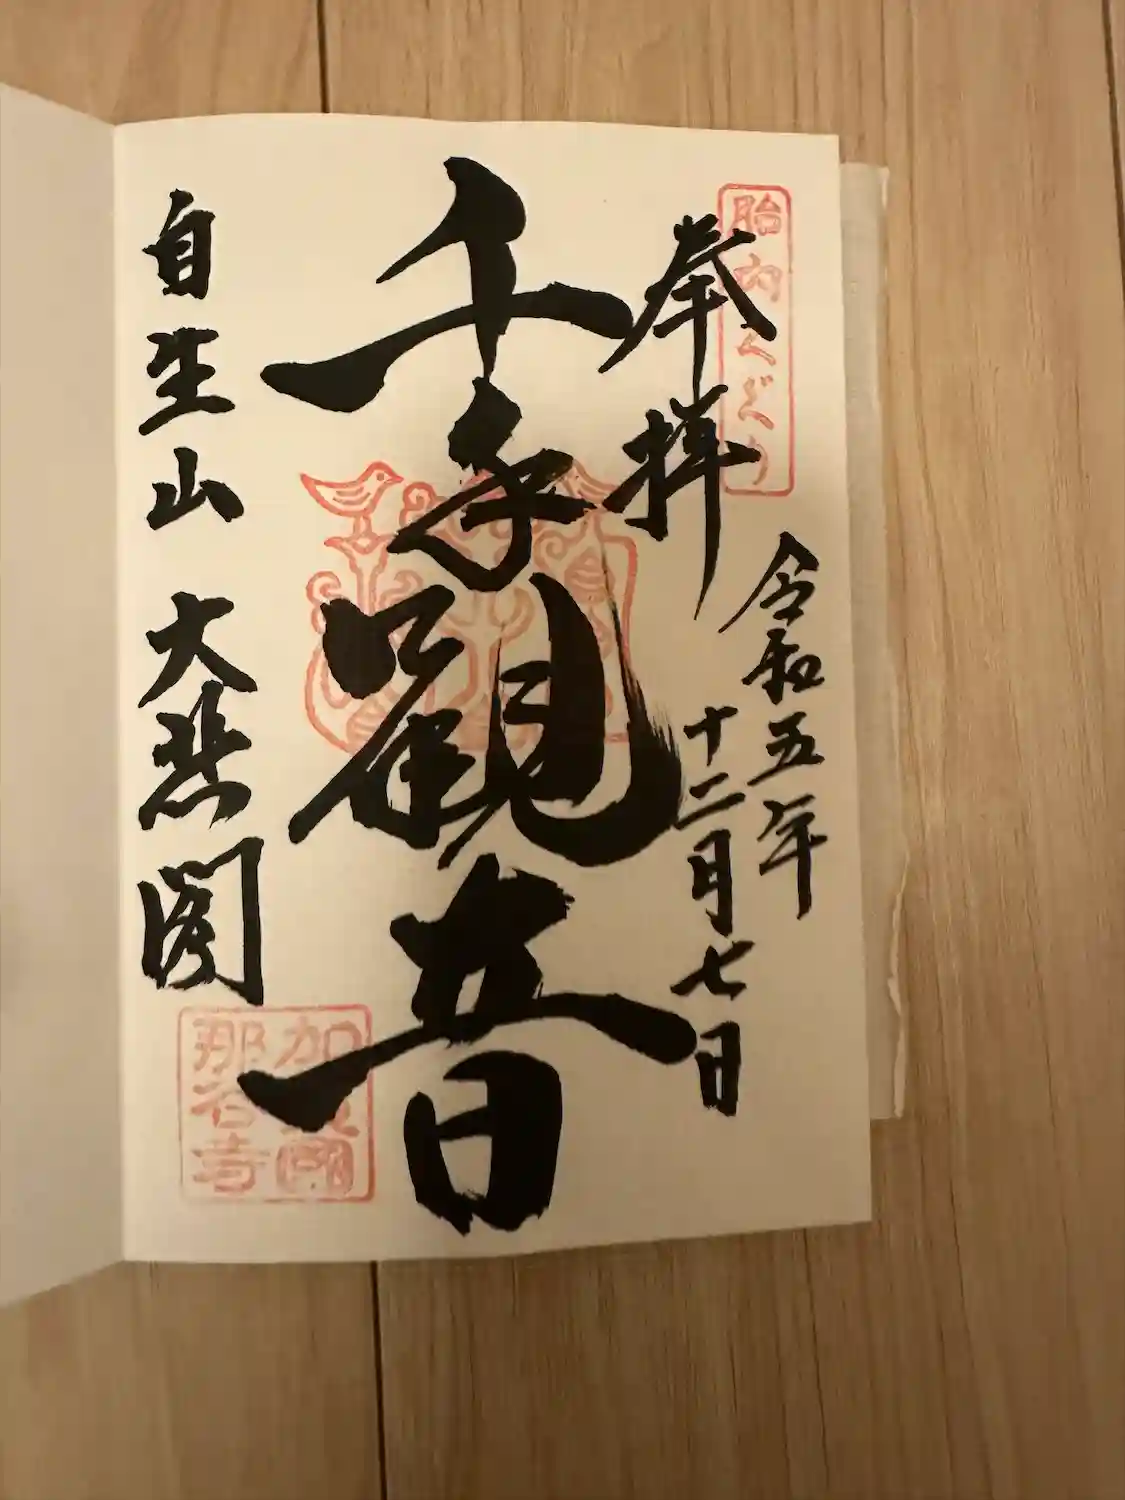 胎内くぐり
奉拝
令和五年
十二月七日
千手観音
自生山 大悲閣
加賀國
那谷寺